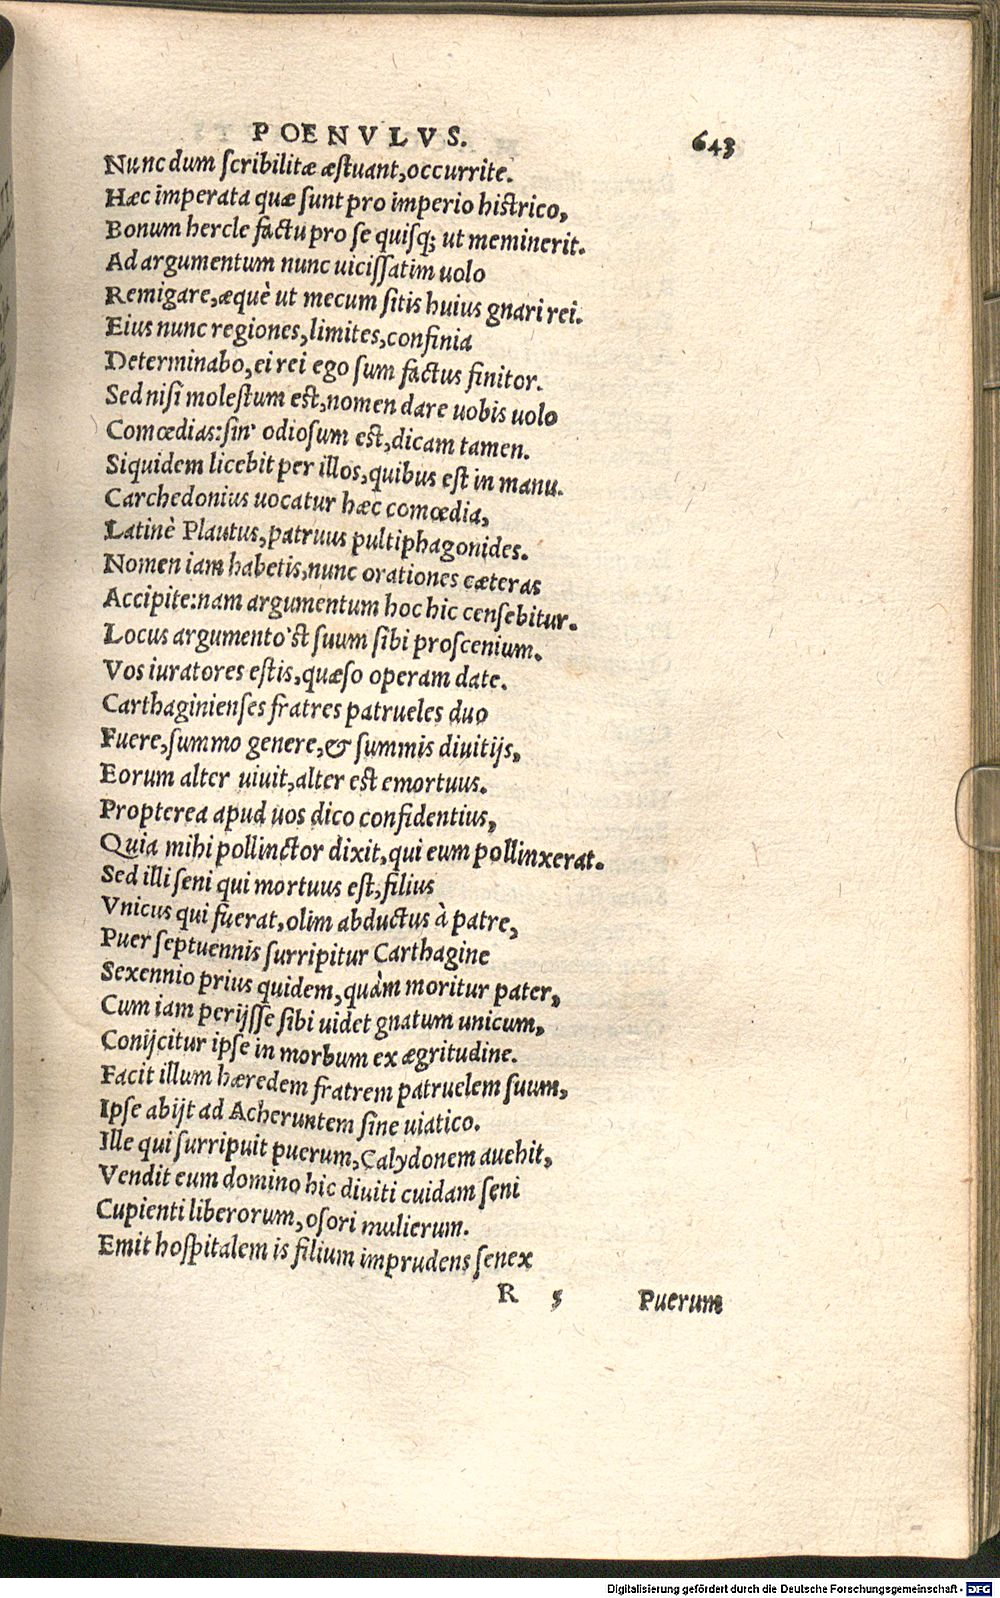 POENVLVS. 643
Nunc dum scribilitæ æstuant, occurrite.
Hæc imperata quæ sunt pro imperio histrico,
Bonum hercle factu pro se quisq; ut meminerit.
Ad argumentum nunc uicissatim uolo
Remigare, æquè ut mecum sitis huius gnari rei.
Eius nunc regiones, limites, confinia
Determinabo, ei rei ego sum factus finitor.
Sed nisi molestum est, nomen dare uobis uolo
Comœdias: sin' odiosum est, dicam tamen.
Siquidem licebit per illos, quibus est in manu.
Carchedonius uocatur hæc comœdia,
Latinè Plautus, patruus pultiphagonides.
Nomen iam habetis, nunc orationes cæteras
Accipite: nam argumentum hoc hic censebitur.
Locus argumento'st suum sibi proscenium.
Vos iuratores estis, quæso operam date.
Carthaginienses fratres patrueles duo
Fuere, summo genere, & summis diuitijs,
Eorum alter uiuit, alter est emortuus.
Propterea apud uos dico confidentius,
Quia mihi pollinctor dixit, qui eum pollinxerat.
Sed illi seni qui mortuus est, filius
Vnicus qui fuerat, olim abductus à patre,
Puer septuennis surripitur Carthagine
Sexennio prius quidem, quàm moritur pater,
Cum iam perijsse sibi uidet gnatum unicum,
Conijcitur ipse in morbum ex ægritudine.
Facit illum hæredem fratrem patruelem suum,
Ipse abijt ad Acheruntem sine uiatico.
Ille qui surripuit puerum, Calydonem auehit,
Vendit eum domino hic diuiti cuidam seni
Cupienti liberorum, osori mulierum.
Emit hospitalem is filium imprudens senex
R 5 Puerum
Digitalisierung gefördert durch die Deutsche Forschungsgemeinschaft - DFG